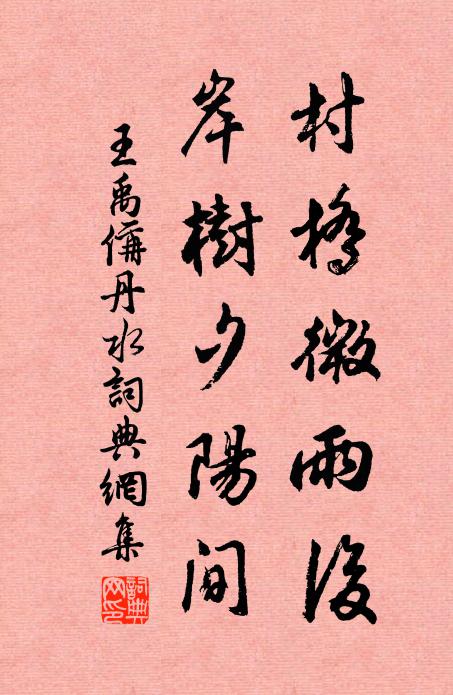 村橋微雨後
岸樹夕陽間
王禹偁丹水詞典網集
詞典網印